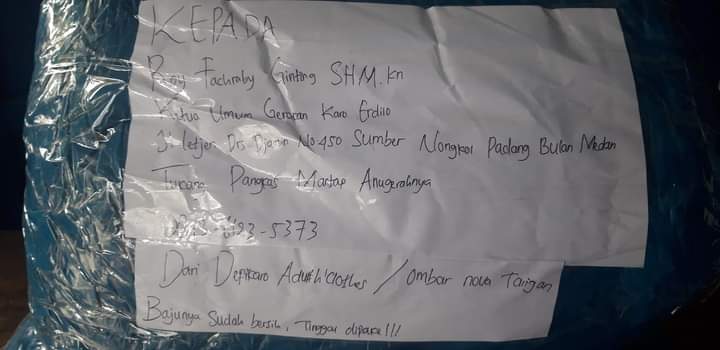 KEPADA
Roy Fachraby Ginting SHM.kn
Ketua Umum Gerakan Karo Erdilo
Jl letjen Djamin No.450 Sumber Nongkoi Padang Bulan Medan
Tukang Pangkas Mantap Anugerahnya
-5373
Dari Depikaro Adutih Clothes / Ombar nova Tarigan
Bajunya Sudah bersih, Tinggal dipakai!!!